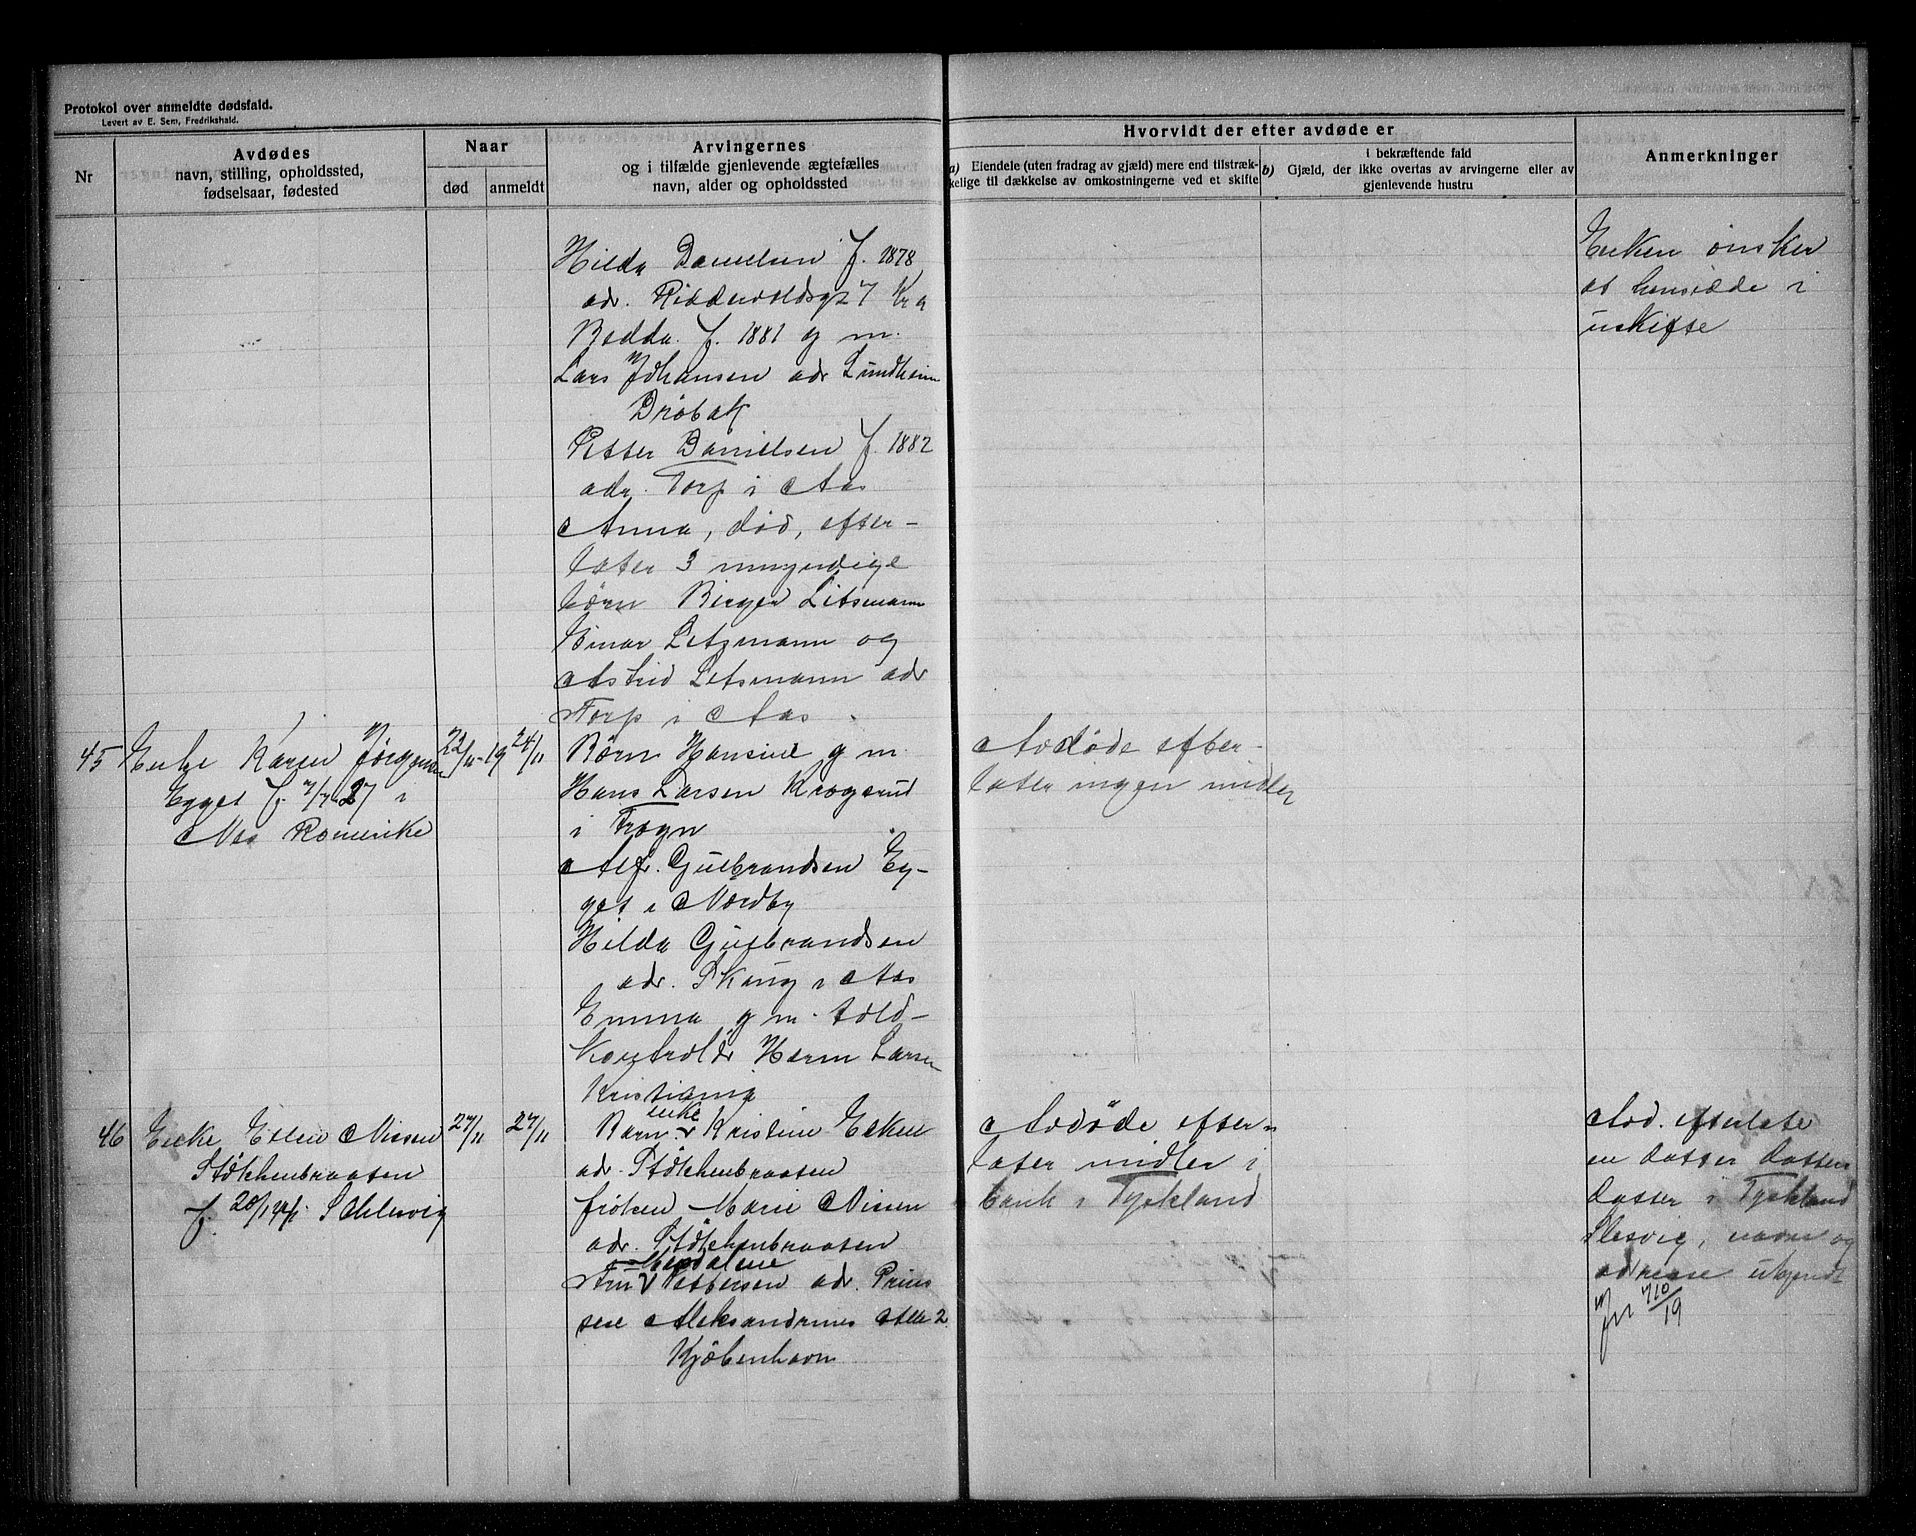 Protokol over anmeldte dødsfald.
Levert av E. Sem, Fredrikshald.
Nr
Avdødes
navn, stilling, opholdssted,
fødselsaar, fødested
Naar
død
anmeldt
Arvingernes
og i tilfælde gjenlevende ægtefælles
navn, alder og opholdssted
Hvorvidt der efter avdøde er
a) Eiendele (uten fradrag av gjæld) mere end tilstræk-
kelige til dækkelse av omkostningerne ved et skifte
i bekræftende fald
b) Gjæld, der ikke overtas av arvingerne eller av
gjenlevende hustru
Anmerkninger
Hilda Danielsen f. 1878
adr. Riddervoldsgt 7 Kra
Bedda f. 1881 g m.
Lars Johansen adr Lundheim
Drøbak
Petter Danielsen f. 1882
adr. Torp i Aas
Anna, død, efter-
later 3 umyndige
børn Birger Litsmann
Einar Letzmann og
Astrid Letsmann adr
Torp i Aas
Enken ønsker
at hensidde i
uskifte
45 Enke Karen Jørgensen
Egget f. 27 i
Nes Romerike
22/11-19
24/11
Børn Hansine g m.
Hans Larsen Krogsrud
i Frogn
Alf. Gulbrandsen Eg-
get i Nordby
Hilda Gulbrandsen
adr. Skaug i Aas
Emma g m. told-
kontrolør Herm Larsen
Kristiania
Avdøde efter-
later ingen midler
46 Enke Ellen Nissen
Støkkenbraaten
f. 20/1 Schlesvig
27/11
27/11
enke
Barn: v Kristine Eeken
adr. Støkkenbraaten
frøken Marie Nissen
adr. Støkkenbraaten
Magdalene
Fru v Pettersen adr. Prins
sesse Aleksandrines Alle 2
Kjöbenhavn
Avdøde efter-
later midler i
bank i Tyskland
Avd. efterlate
en datter datters
datter i Tyskland
Slesvig, navn og
adresse ukjendt
jnr 710/19